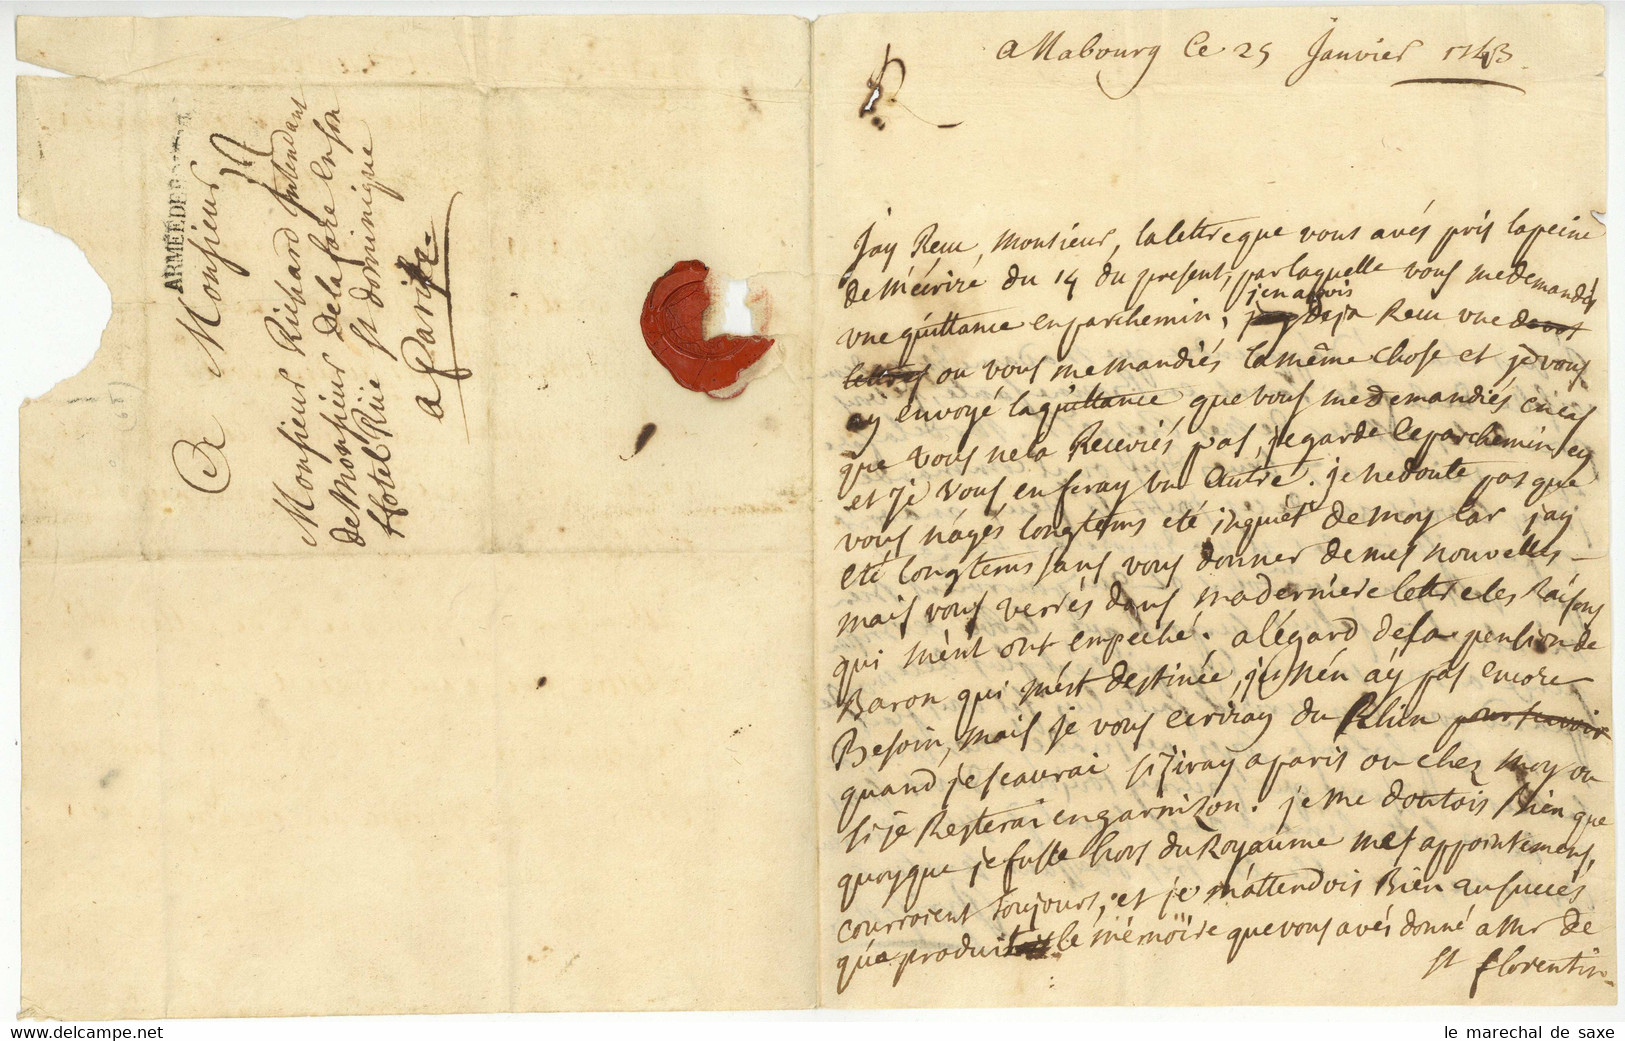 ARMÉEDEB
A Monsieur
Monsieur Richard Intendant
de Monsieur Delafare en son
hotel Rüe St dominique
a Paris
a Nabourg Ce 25 Janvier 1743
Jay Reçu, Monsieur, la lettre que vous avés pris la peine
de mécrire du 14 du present, par laquelle vous me demandés
j'en avois
vne quittance en parchemin, deja Reçu vne
lettres ou vous me mandiés la même chose et je vous
ay envoyé la quittance que vous me demandiés en cas
que vous ne la Receviés pas, je garde le parchemin
et je vous en feray un Autre. je ne doute pas que
vous n'ayés longtems eté inquiet de moy Car jay
eté longtems sans vous donner de mes nouvelles
mais vous verrés dans ma derniére lettre les Raisons
qui m'ent ont empeché. a l'égard de la pension de
Baron qui m'est destinée, je n'en ay pas encore
Besoin, mais je vous ecriray du Rhin pour scavoir
quand je scaurai si j'iray a paris ou chez moy ou
si je Resterai en garnison. je me doutois Bien que
quoyque je fusse hors du Royaume mes appointemens,
courroient toujours, et je m'attendois Bien au succés
qu'a produit le mémoire que vous avés donné a Mr de
St florentin
le marechal de saxe
www.delcampe.net